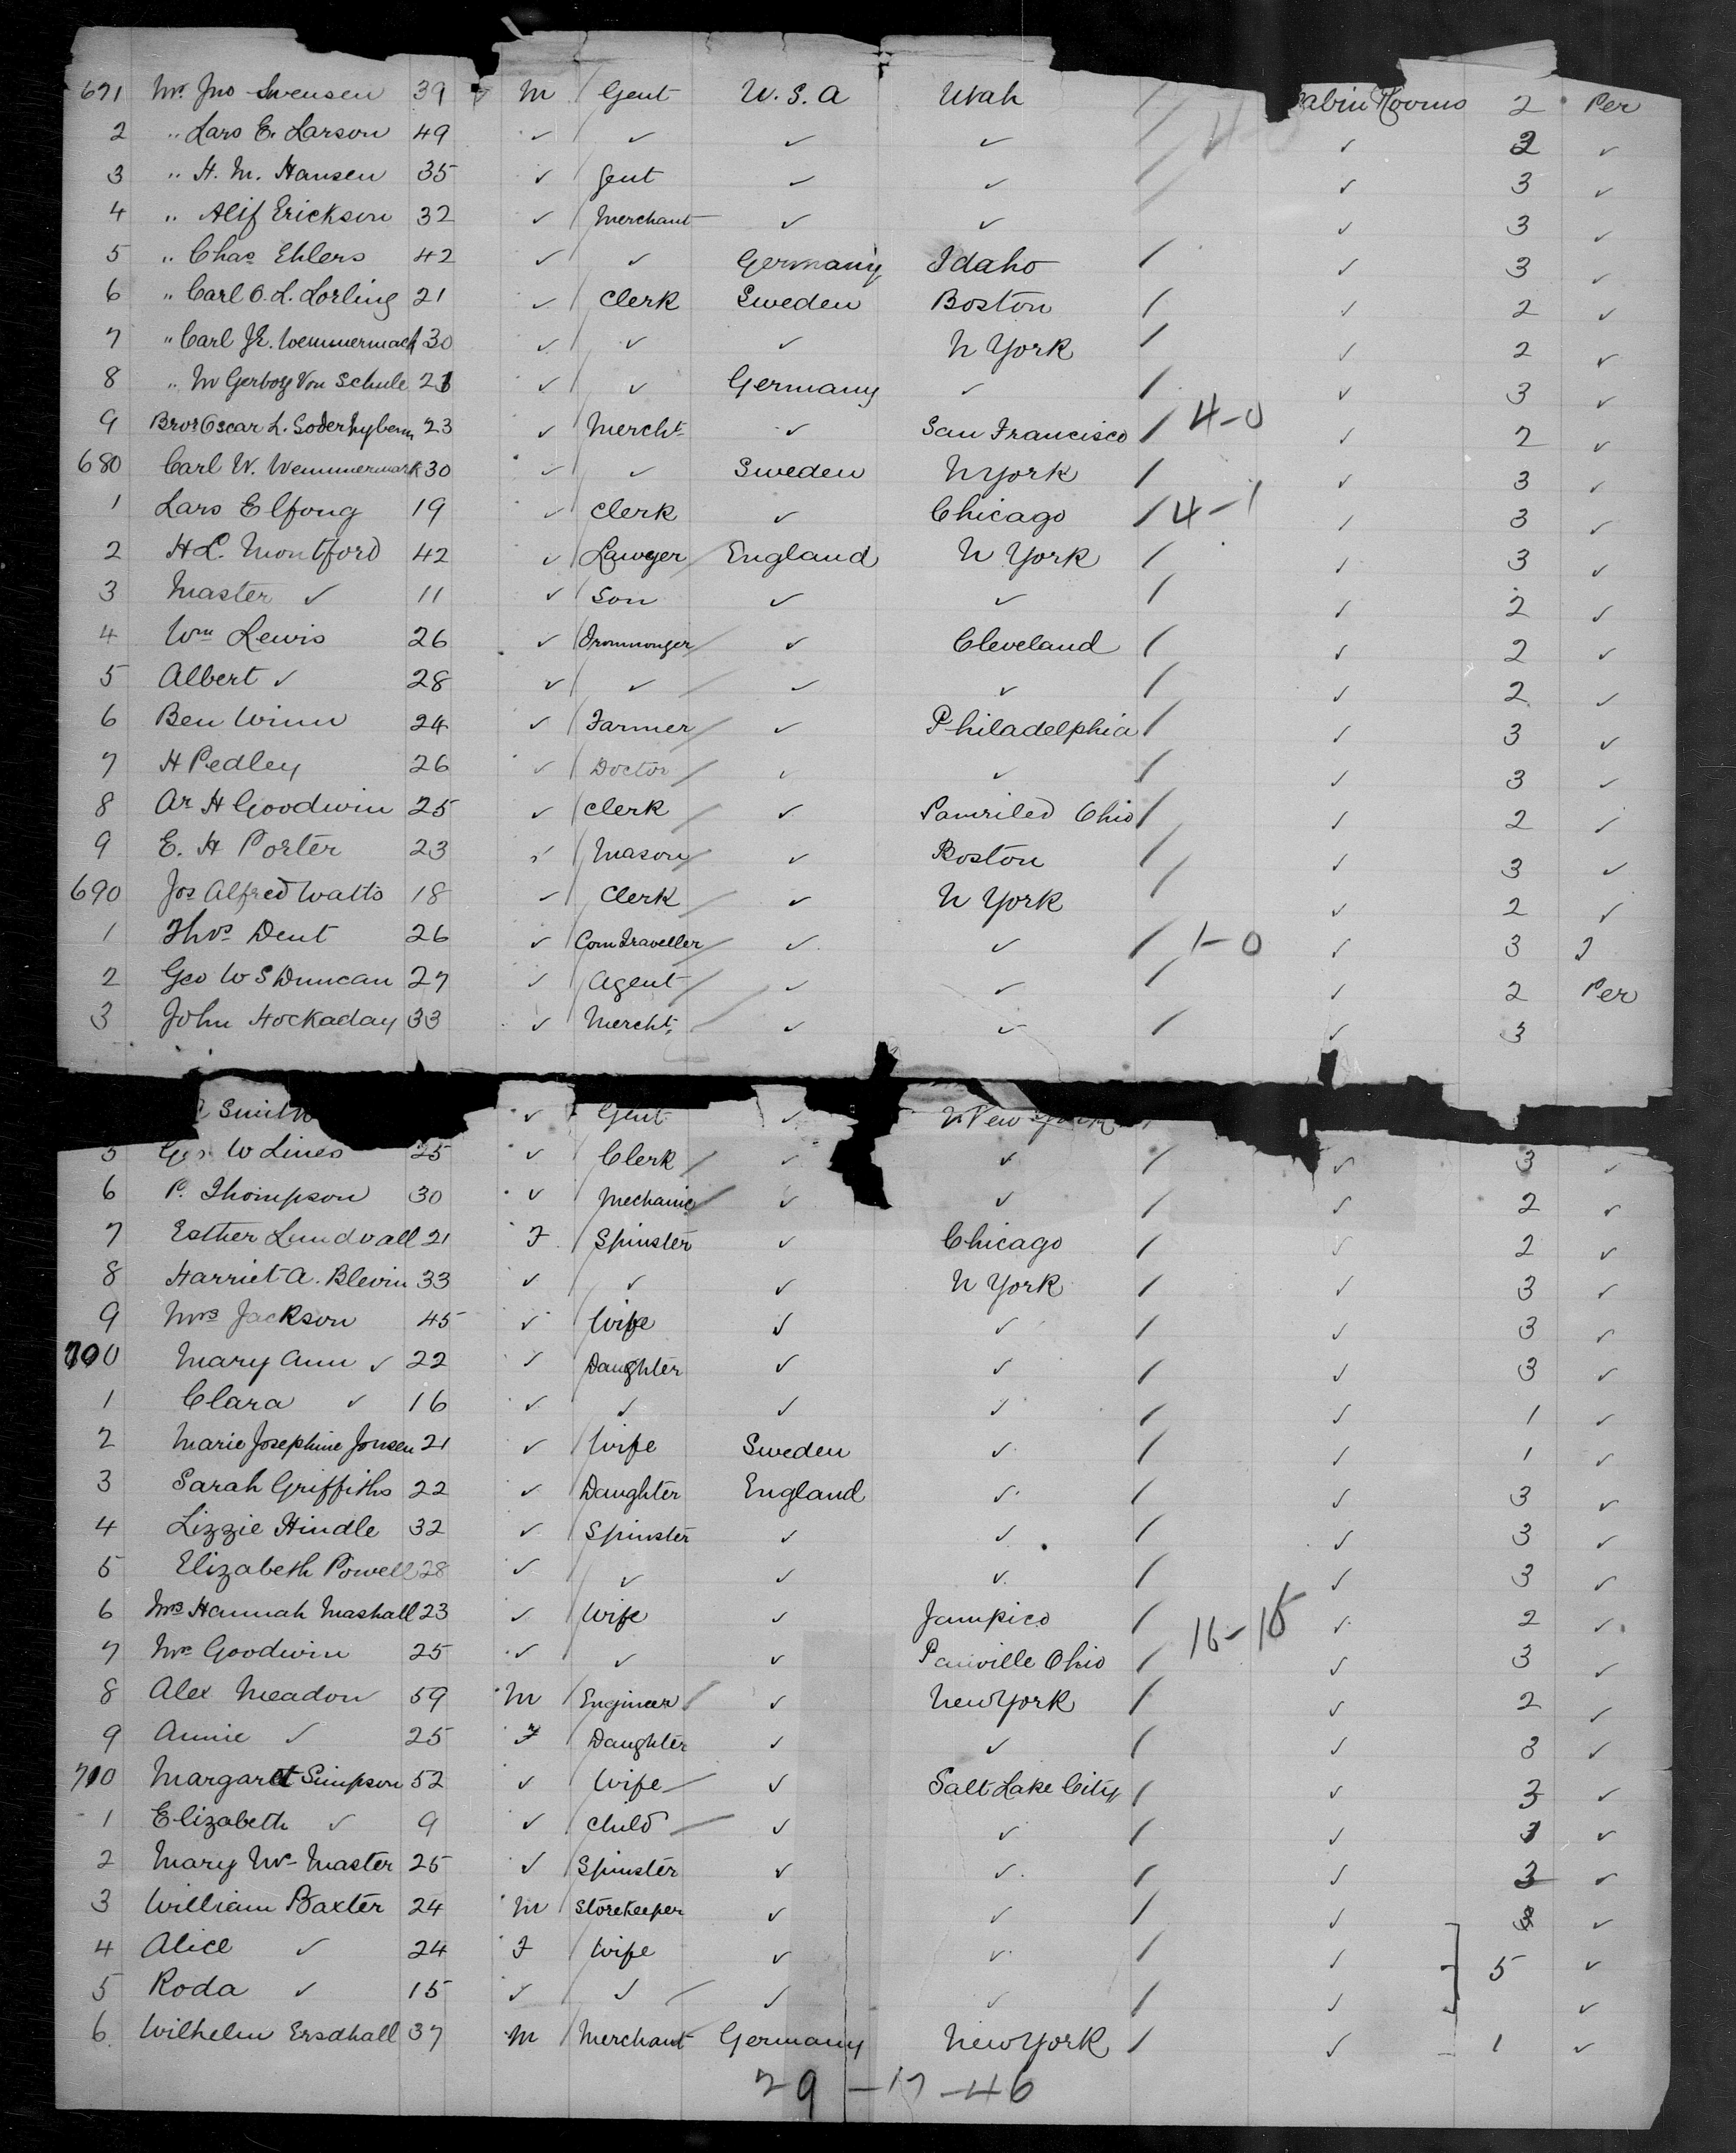 671 Mr. Jno Swensen 39 ✓ M Gent U.S.A Utah / Cabin Rooms 2 Per
2 " Lars E. Larson 49 ✓ ✓ ✓ ✓ / ✓ 2 ✓
3 " H. M. Hansen 35 ✓ Gent ✓ ✓ / ✓ 3 ✓
4 " Alif Erickson 32 ✓ Merchant ✓ ✓ ✓ 3 ✓
5 " Chas Ehlers 42 ✓ ✓ Germany Idaho / ✓ 3 ✓
6 " Carl O. L. Lorling 21 ✓ Clerk Sweden Boston / ✓ 2 ✓
7 " Carl JE. Wemmermach 30 ✓ ✓ ✓ N York / ✓ 2 ✓
8 " Von Schule 21 ✓ ✓ Germany ✓ / ✓ 3 ✓
9 Oscar L. 23 ✓ Mercht ✓ San Francisco / 4-0 ✓ 2 ✓
680 Carl W. Wemmermark 30 ✓ ✓ Sweden N York / ✓ 3 ✓
1 Lars Elfong 19 ✓ Clerk ✓ Chicago / 4-1 ✓ 3 ✓
2 H L. Montford 42 ✓ Lawyer England N York / ✓ 3 ✓
3 Master ✓ 11 ✓ Son ✓ ✓ / ✓ 2 ✓
4 Wm Lewis 26 ✓ Ironmonger ✓ Cleveland / ✓ 2 ✓
5 Albert ✓ 28 ✓ ✓ ✓ ✓ / ✓ 2 ✓
6 Ben Winn 24 ✓ Farmer ✓ Philadelphia / ✓ 3 ✓
7 H Pedley 26 ✓ Doctor ✓ ✓ / ✓ 3 ✓
8 Ar H Goodwin 25 ✓ Clerk ✓ Ohio / ✓ 2 ✓
9 E. H Porter 23 ✓ Mason ✓ Boston / ✓ 3 ✓
690 Jos Alfred Watts 18 ✓ Clerk ✓ N York / ✓ 2 ✓
1 Thos Dent 26 ✓ Com Traveller ✓ ✓ / 1-0 ✓ 3
2 Geo W S Duncan 27 ✓ Agent ✓ ✓ / ✓ 2 Per
3 John Hockaday 33 ✓ Mercht ✓ ✓ / ✓ 3
Smith ✓ Gent ✓ New York
5 Geo W Lines 25 ✓ Clerk ✓ ✓ / ✓ 3 ✓
6 P. Thompson 30 ✓ Mechanic ✓ ✓ / ✓ 2 ✓
7 Esther Lundvall 21 F Spinster ✓ Chicago / ✓ 2 ✓
8 Harriet A. Blevin 33 ✓ ✓ ✓ N York / ✓ 3 ✓
9 Mrs Jackson 45 ✓ Wife ✓ ✓ / ✓ 3 ✓
700 Mary Ann ✓ 22 ✓ Daughter ✓ ✓ / ✓ 3 ✓
1 Clara ✓ 16 ✓ ✓ ✓ ✓ / ✓ 1 ✓
2 Marie Josephine Jonsen 21 ✓ Wife Sweden ✓ / ✓ 1 ✓
3 Sarah Griffiths 22 ✓ Daughter England ✓ / ✓ 3 ✓
4 Lizzie Hindle 32 ✓ Spinster ✓ ✓ / ✓ 3 ✓
5 Elizabeth Powell 28 ✓ ✓ ✓ ✓ / ✓ 3 ✓
6 Mrs Hannah Mashall 23 ✓ Wife ✓ Jampico / ✓ 2 ✓
7 Mrs Goodwin 25 ✓ ✓ ✓ Painville Ohio / 16-15 ✓ 3 ✓
8 Alex Meadon 59 M Engineer ✓ New York / ✓ 2 ✓
9 Annie ✓ 25 F Daughter ✓ ✓ / ✓ 3 ✓
710 Margaret Simpson 52 ✓ Wife ✓ Salt Lake City / ✓ 3 ✓
1 Elizabeth ✓ 9 ✓ Child ✓ ✓ / ✓ 1 ✓
2 Mary Mc Master 25 ✓ Spinster ✓ ✓ / ✓ 3 ✓
3 William Baxter 24 M Storekeeper ✓ ✓ / ✓ ✓
4 Alice ✓ 24 F Wife ✓ ✓ / ✓ 5 ✓
5 Roda ✓ 15 ✓ ✓ ✓ ✓ / ✓ ✓
6 Wilhelm Ersdhall 37 M Merchant Germany New York / ✓ 1 ✓
29-17-46